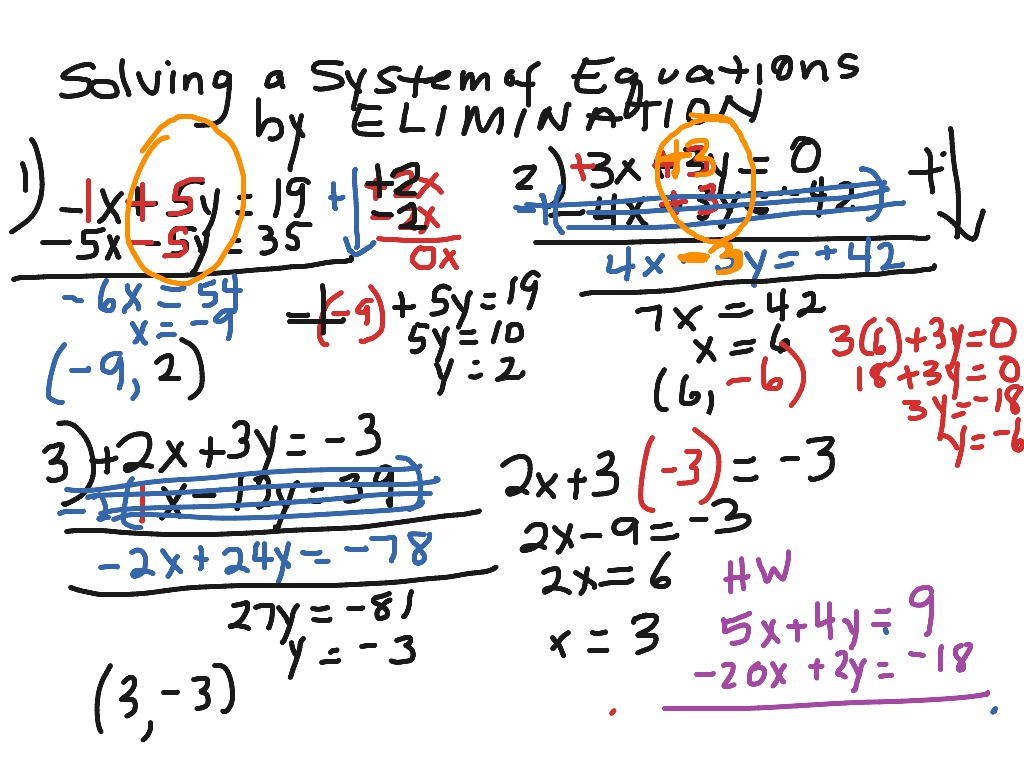 Solving a System of Equations
by ELIMINATION
1)
-1x + 5y = 19
-5x - 5y = 35
-6x = 54
x = -9
(-9, 2)
+
+2x
-2x
0x
-1(-9) + 5y = 19
5y = 10
y = 2
2) +3x +3y = 0
-1(-4x +3y = -42)
4x - 3y = +42
+
7x = 42
x = 6
(6, -6)
3(6)+3y=0
18+3y=0
3y=-18
y=-6
3) +2x+3y = -3
-2(1x - 12y = 39)
-2x+24y = -78
27y = -81
y = -3
(3, -3)
2x+3(-3) = -3
2x-9 = -3
2x = 6
x = 3
HW
5x+4y = 9
-20x +2y = -18